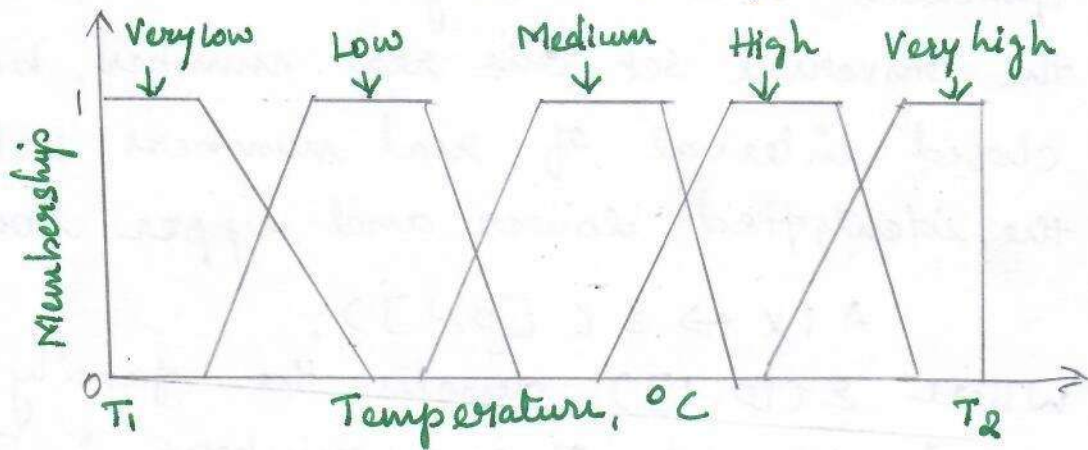 Very low Low Medium High Very high
1
Membership
0
T1 Temperature, °C T2